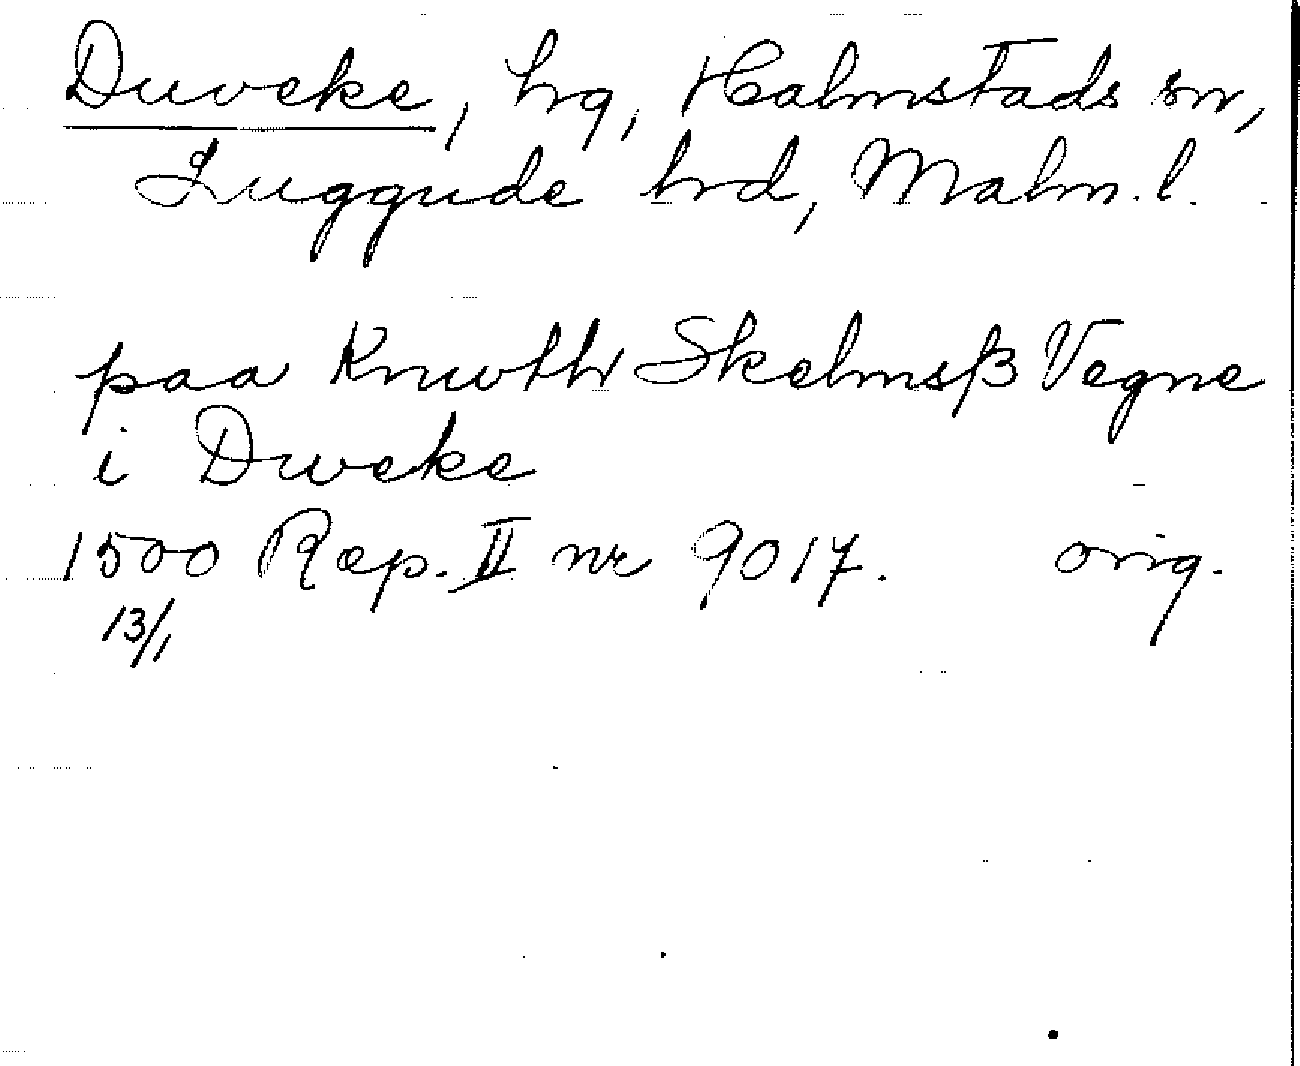 Duveke, hg, Halmstads sn,
Luggude hd, Malm. l.
paa Knwth Skelmsß Vegne
i Dweke
1500 Rep. II nr 9017. orig.
13/1